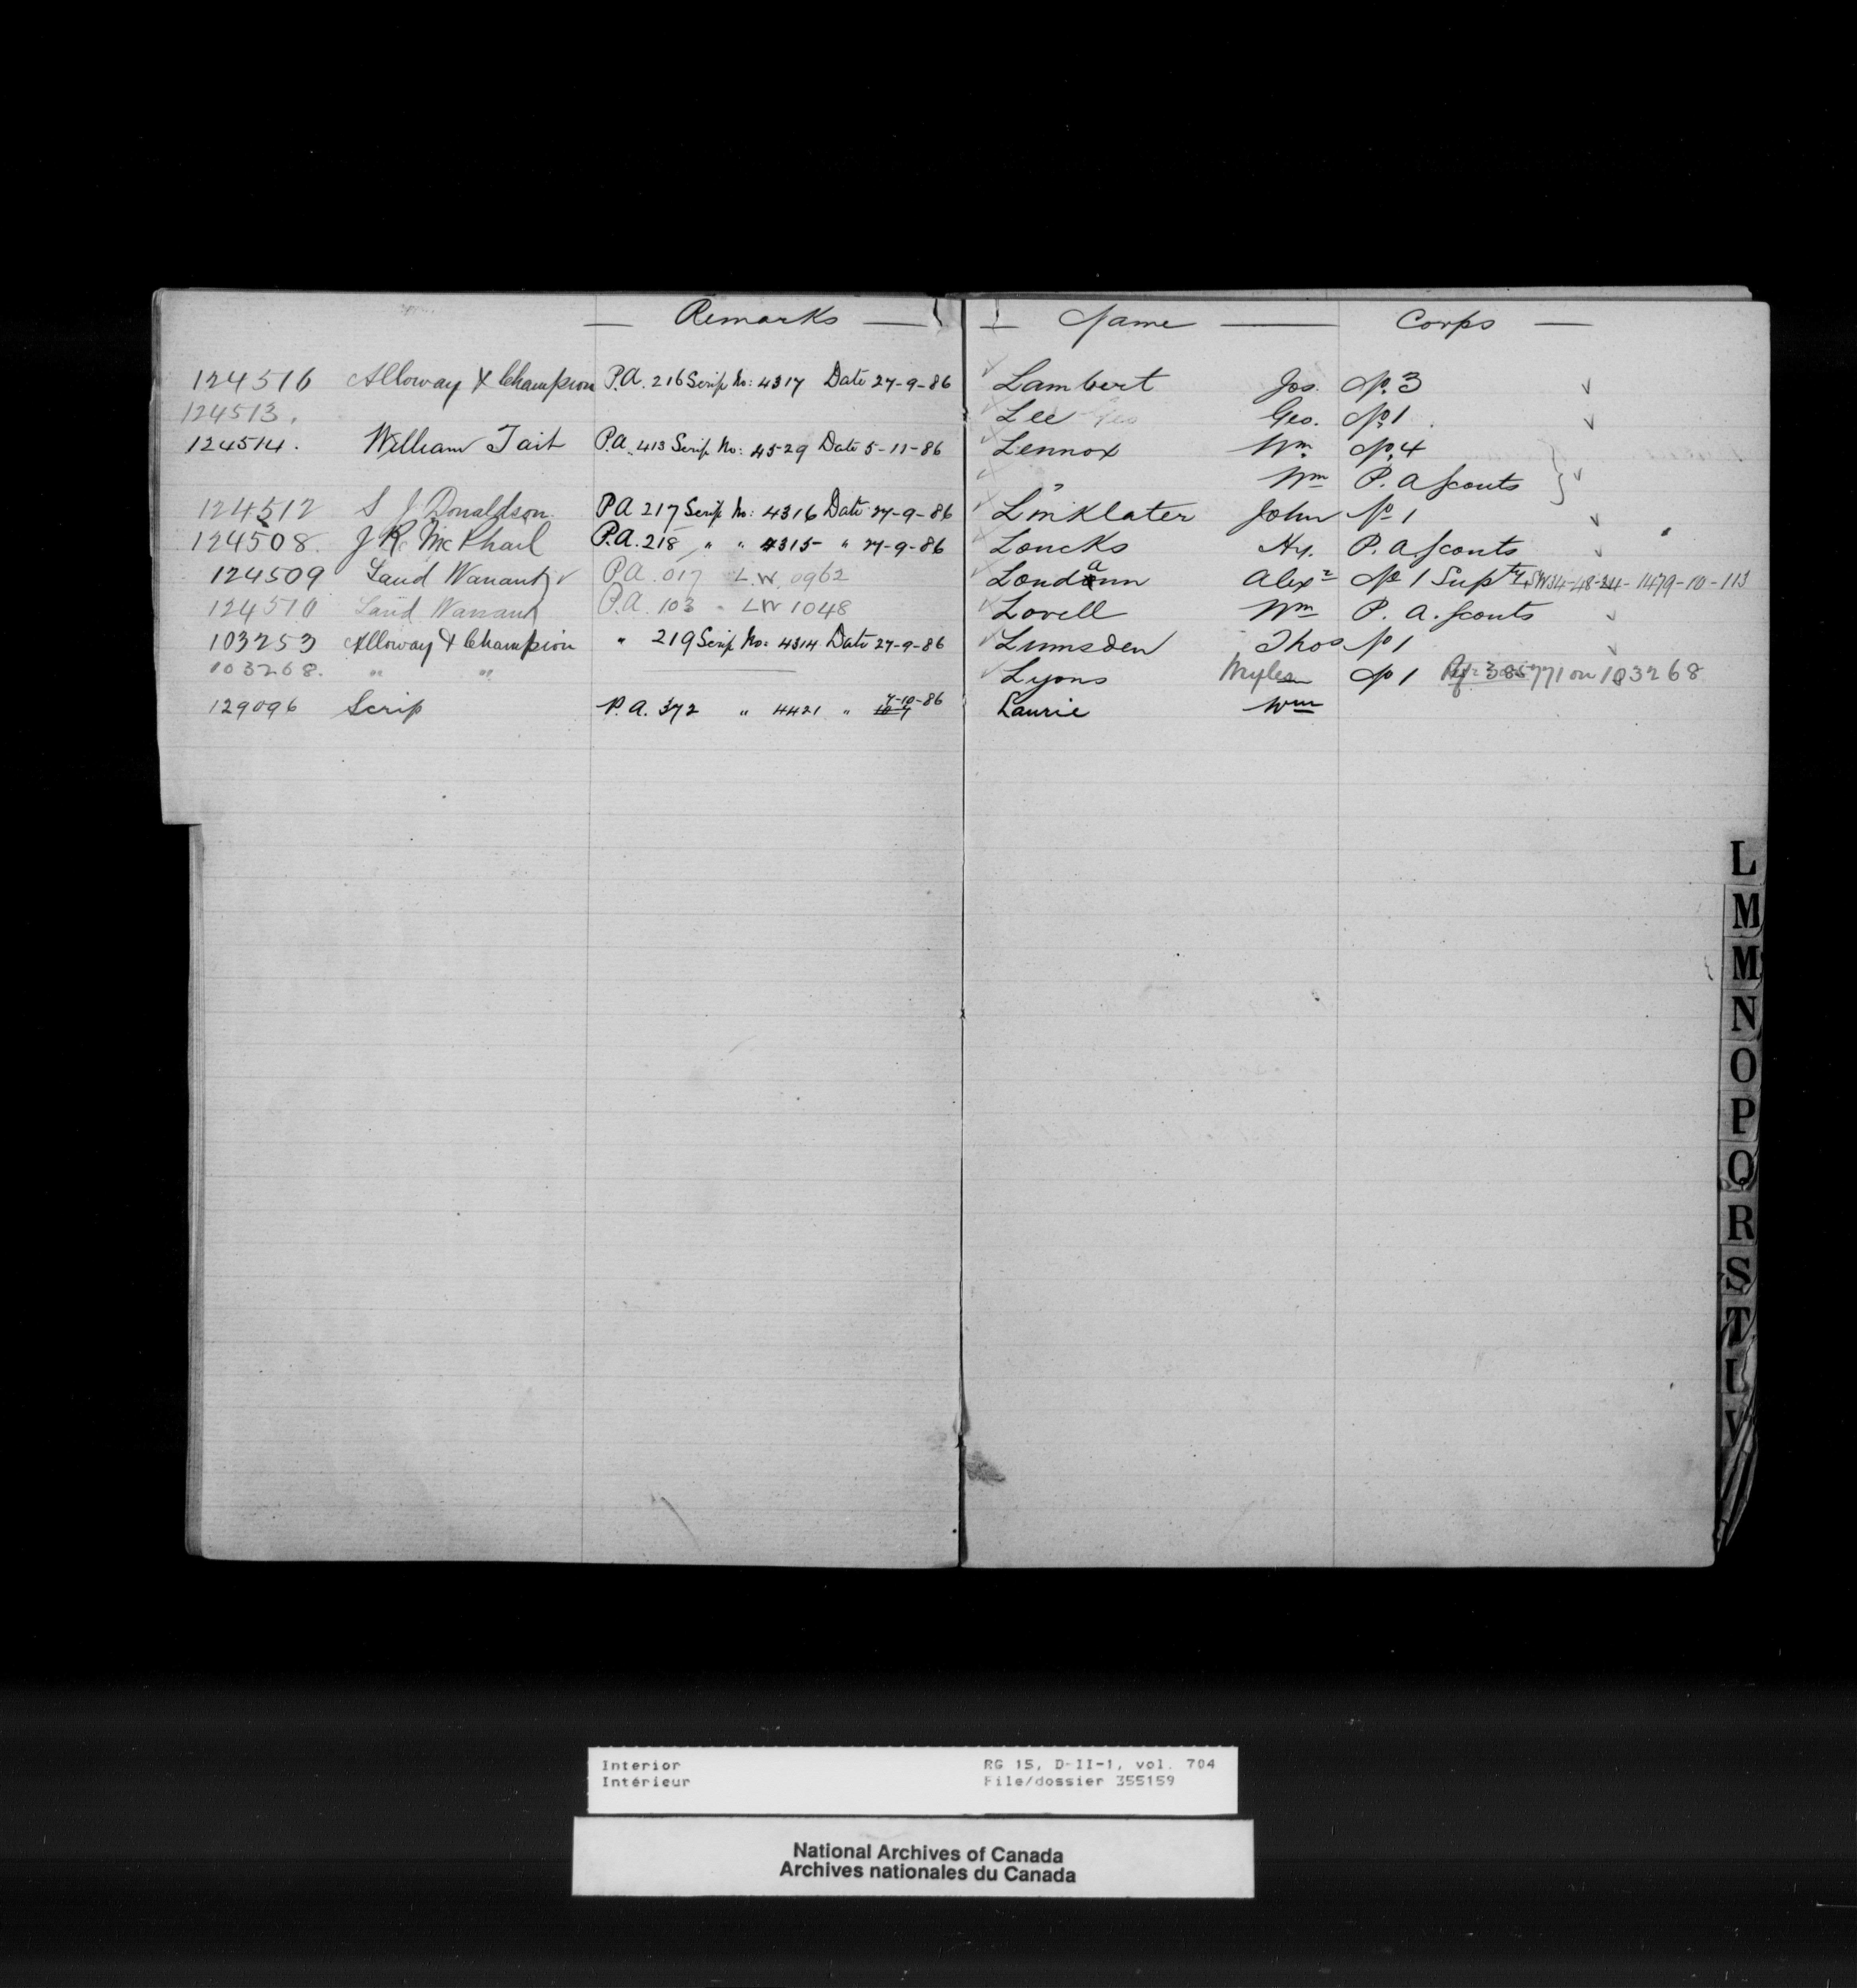 Remarks
124516 Alloway & Champion P.A. 216 Scrip No: 4317 Date 27-9-86
124513.
124514. William Tait P.A. 413 Scrip No: 4529 Date 5-11-86
124512 S J Donaldson. P.A 217 Scrip No: 4316 Date 27-9-86
124508. J R. McPhail P.A. 218 " " 4315 " 27-9-86
124509 Land Warrant P.A. 017 L.W. 0962
124510 Land Warrant P.A. 103 " LW 1048
103253 Alloway & Champion " 219 Scrip No: 4314 Date 27-9-86
103268. " "
129096 Scrip P.A. 372 " 4421 " 7-10-86
Name Corps
Lambert Jos. No. 3
Lee Geo Geo. No. 1
Lennox Wm No. 4
" Wm P. A Scouts
Linklater John No 1
Loucks Hy. P. A. Scouts
Loudann Alexr No 1 Supty SW34-48-24- 1479-10-113
Lovell Wm P. A. Scouts
Lumsden Thos No 1
Lyons Myles No 1 Ref. 385771 on 103268
Laurie Wm
L
M
M
N
O
P
Q
R
S
T
V
Interior
Intérieur
RG 15, D-II-1, vol. 704
File/dossier 355159
National Archives of Canada
Archives nationales du Canada